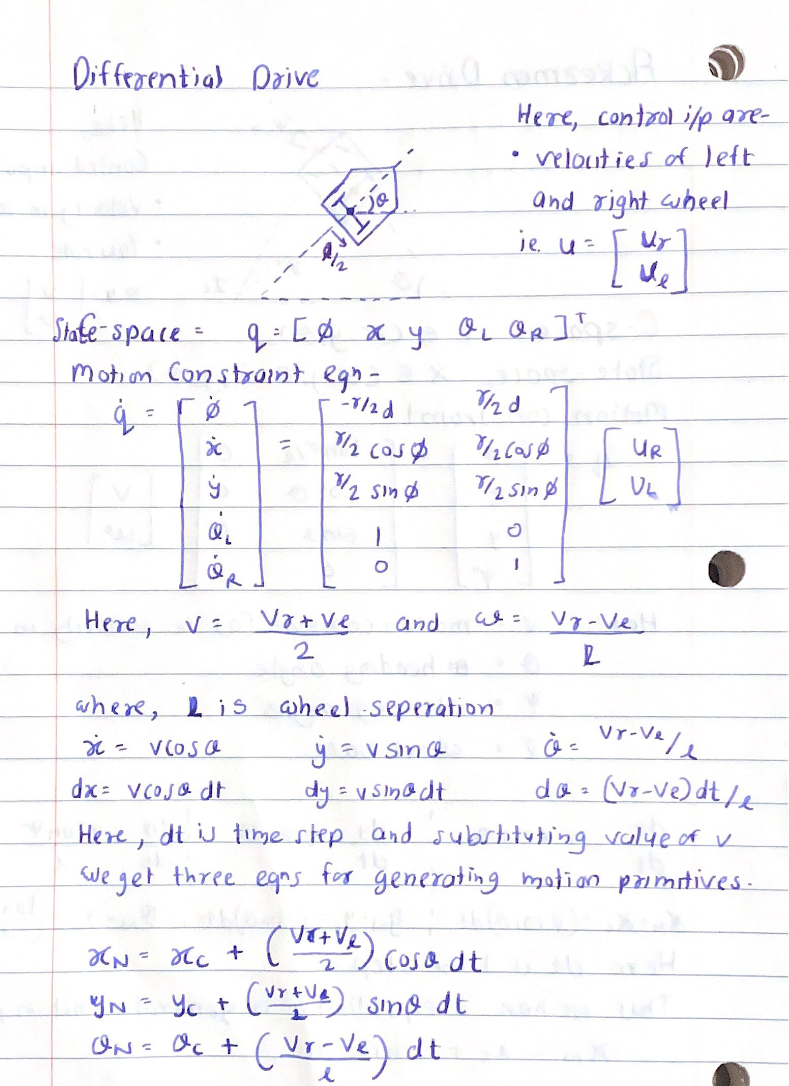 Differential Drive
Here, control i/p are-
• velocities of left
and right wheel
ie. u = [ Ur
Ul ]
θ
l/2
State-space = q = [ ϕ x y θL θR ]ᵀ
Motion Constraint eqn-
q̇ = [ ϕ̇ ẋ ẏ θ̇L θ̇R ] = [ -r/2d r/2d
r/2 cosϕ r/2 cosϕ
r/2 sinϕ r/2 sinϕ
1 0
0 1 ] [ UR
UL ]
Here, v = (Vr + Vl)/2 and ω = (Vr - Vl)/l
where, l is wheel seperation
ẋ = vcosθ ẏ = v sinθ θ̇ = Vr-Vl/l
dx = vcosθ dt dy = v sinθdt dθ = (Vr-Vl)dt/l
Here, dt is time step and substituting value of v
we get three eqns for generating motion primitives.
xN = xC + ((Vr+Vl)/2) cosθ dt
yN = yC + ((Vr+Vl)/2) sinθ dt
θN = θC + ((Vr-Vl)/l) dt